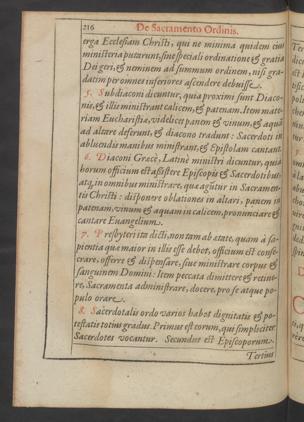 216 De Sacramento Ordinis.
erga Ecclesiam Christi, qui ne minima quidem eius
ministeria putarunt, sine speciali ordinatione & gratia
Dei geri, & neminem ad summum ordinem, nisi gra-
datim per omnes inferiores ascendere debuisse.
5. Subdiaconi dicuntur, quia proximi sunt Diaco-
nis, & illis ministrant calicem, & patenam. Item mate-
riam Eucharistiæ, videlicet panem & vinum, & aquā
ad altare deferunt, & diacono tradunt: Sacerdoti in
abluendis manibus ministrant, & Epistolam cantant.
6. Diaconi Græcè, Latinè ministri dicuntur, quia
horum officium est assistere Episcopis & Sacerdotibus
atq, in omnibus ministrare, quæ agūtur in Sacramen-
tis Christi: disponere oblationes in altari, panem in
patenam, vinum & aquam in calicem, pronunciare &
cantare Euangelium.
7. Presbyteri ita dicti, non tam ab ætate, quam à sa-
pientia quæ maior in illis esse debet, officium est conse-
crare, offerre & dispensare, siue ministrare corpus &
sanguinem Domini: Item peccata dimittere & retine-
re, Sacramenta administrare, docere, pro se atque po-
pulo orare.
8. Sacerdotalis ordo varios habet dignitatis & po-
testatis totius gradus. Primus est eorum, qui simpliciter
Sacerdotes vocantur. Secundus est Episcoporum.
Tertius